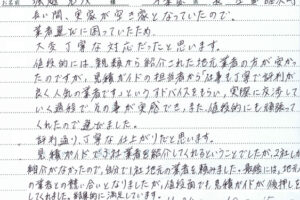 長い間、実家が空き家となっていたので、
業者選びに困っていたため、
大変丁寧な対応だったと思います。
値段的には、親類から紹介された地元業者の方が安かっ
たのですが、見積ガイドの担当者から仕事も丁寧で評判が
良く人気の業者です。というアドバイスをもらい、実際に交渉して
いく過程で、その事が実感でき、また、値段的にも頑張って
くれたので選びました。
評判通り、丁寧な仕上がりだと思います。
見積ガイドで3社業者を紹介してくれるということでしたが、2社しか
紹介がなかたので、自分で1社地元の業者を頼みました。最後には、地元
の業者との競い合いとなりましたが、値段面でも見積ガイドが後押しを
してくれました。結果的に満足しています。